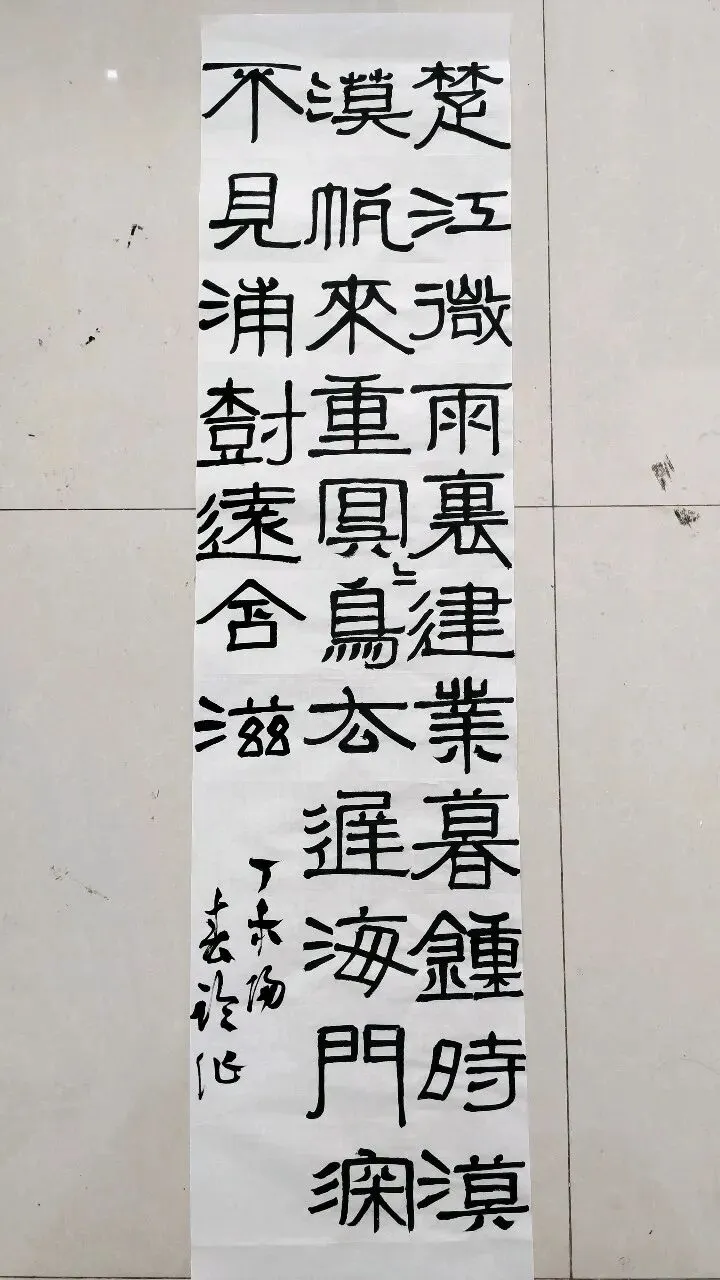 楚江微雨裏建業暮鍾時漠
漠帆來重冥〻鳥去遲海門深
不見浦樹遠含滋
丁未陽
春作